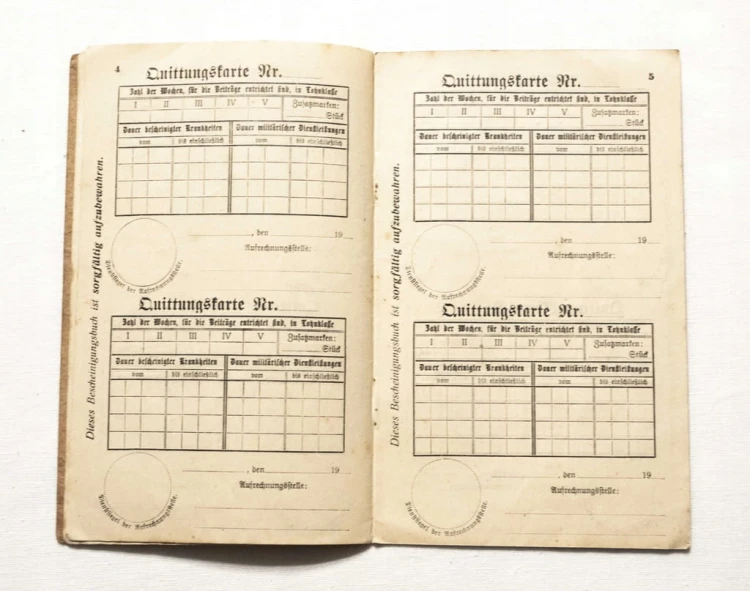 4
Quittungskarte Nr.
Zahl der Wochen, für die Beiträge entrichtet sind, in Lohnklasse
I II III IV V Zusatzmarken:
Stück
Dauer bescheinigter Krankheiten Dauer militärischer Dienstleistungen
vom bis einschließlich vom bis einschließlich
, den 19
Aufrechnungsstelle:
Dienstsiegel der Aufrechnungsstelle.
Quittungskarte Nr.
Zahl der Wochen, für die Beiträge entrichtet sind, in Lohnklasse
I II III IV V Zusatzmarken:
Stück
Dauer bescheinigter Krankheiten Dauer militärischer Dienstleistungen
vom bis einschließlich vom bis einschließlich
, den 19
Aufrechnungsstelle:
Dienstsiegel der Aufrechnungsstelle.
Dieses Bescheinigungsbuch ist sorgfältig aufzubewahren.
5
Quittungskarte Nr.
Zahl der Wochen, für die Beiträge entrichtet sind, in Lohnklasse
I II III IV V Zusatzmarken:
Stück
Dauer bescheinigter Krankheiten Dauer militärischer Dienstleistungen
vom bis einschließlich vom bis einschließlich
, den 19
Aufrechnungsstelle:
Dienstsiegel der Aufrechnungsstelle.
Quittungskarte Nr.
Zahl der Wochen, für die Beiträge entrichtet sind, in Lohnklasse
I II III IV V Zusatzmarken:
Stück
Dauer bescheinigter Krankheiten Dauer militärischer Dienstleistungen
vom bis einschließlich vom bis einschließlich
, den 19
Aufrechnungsstelle:
Dienstsiegel der Aufrechnungsstelle.
Dieses Bescheinigungsbuch ist sorgfältig aufzubewahren.